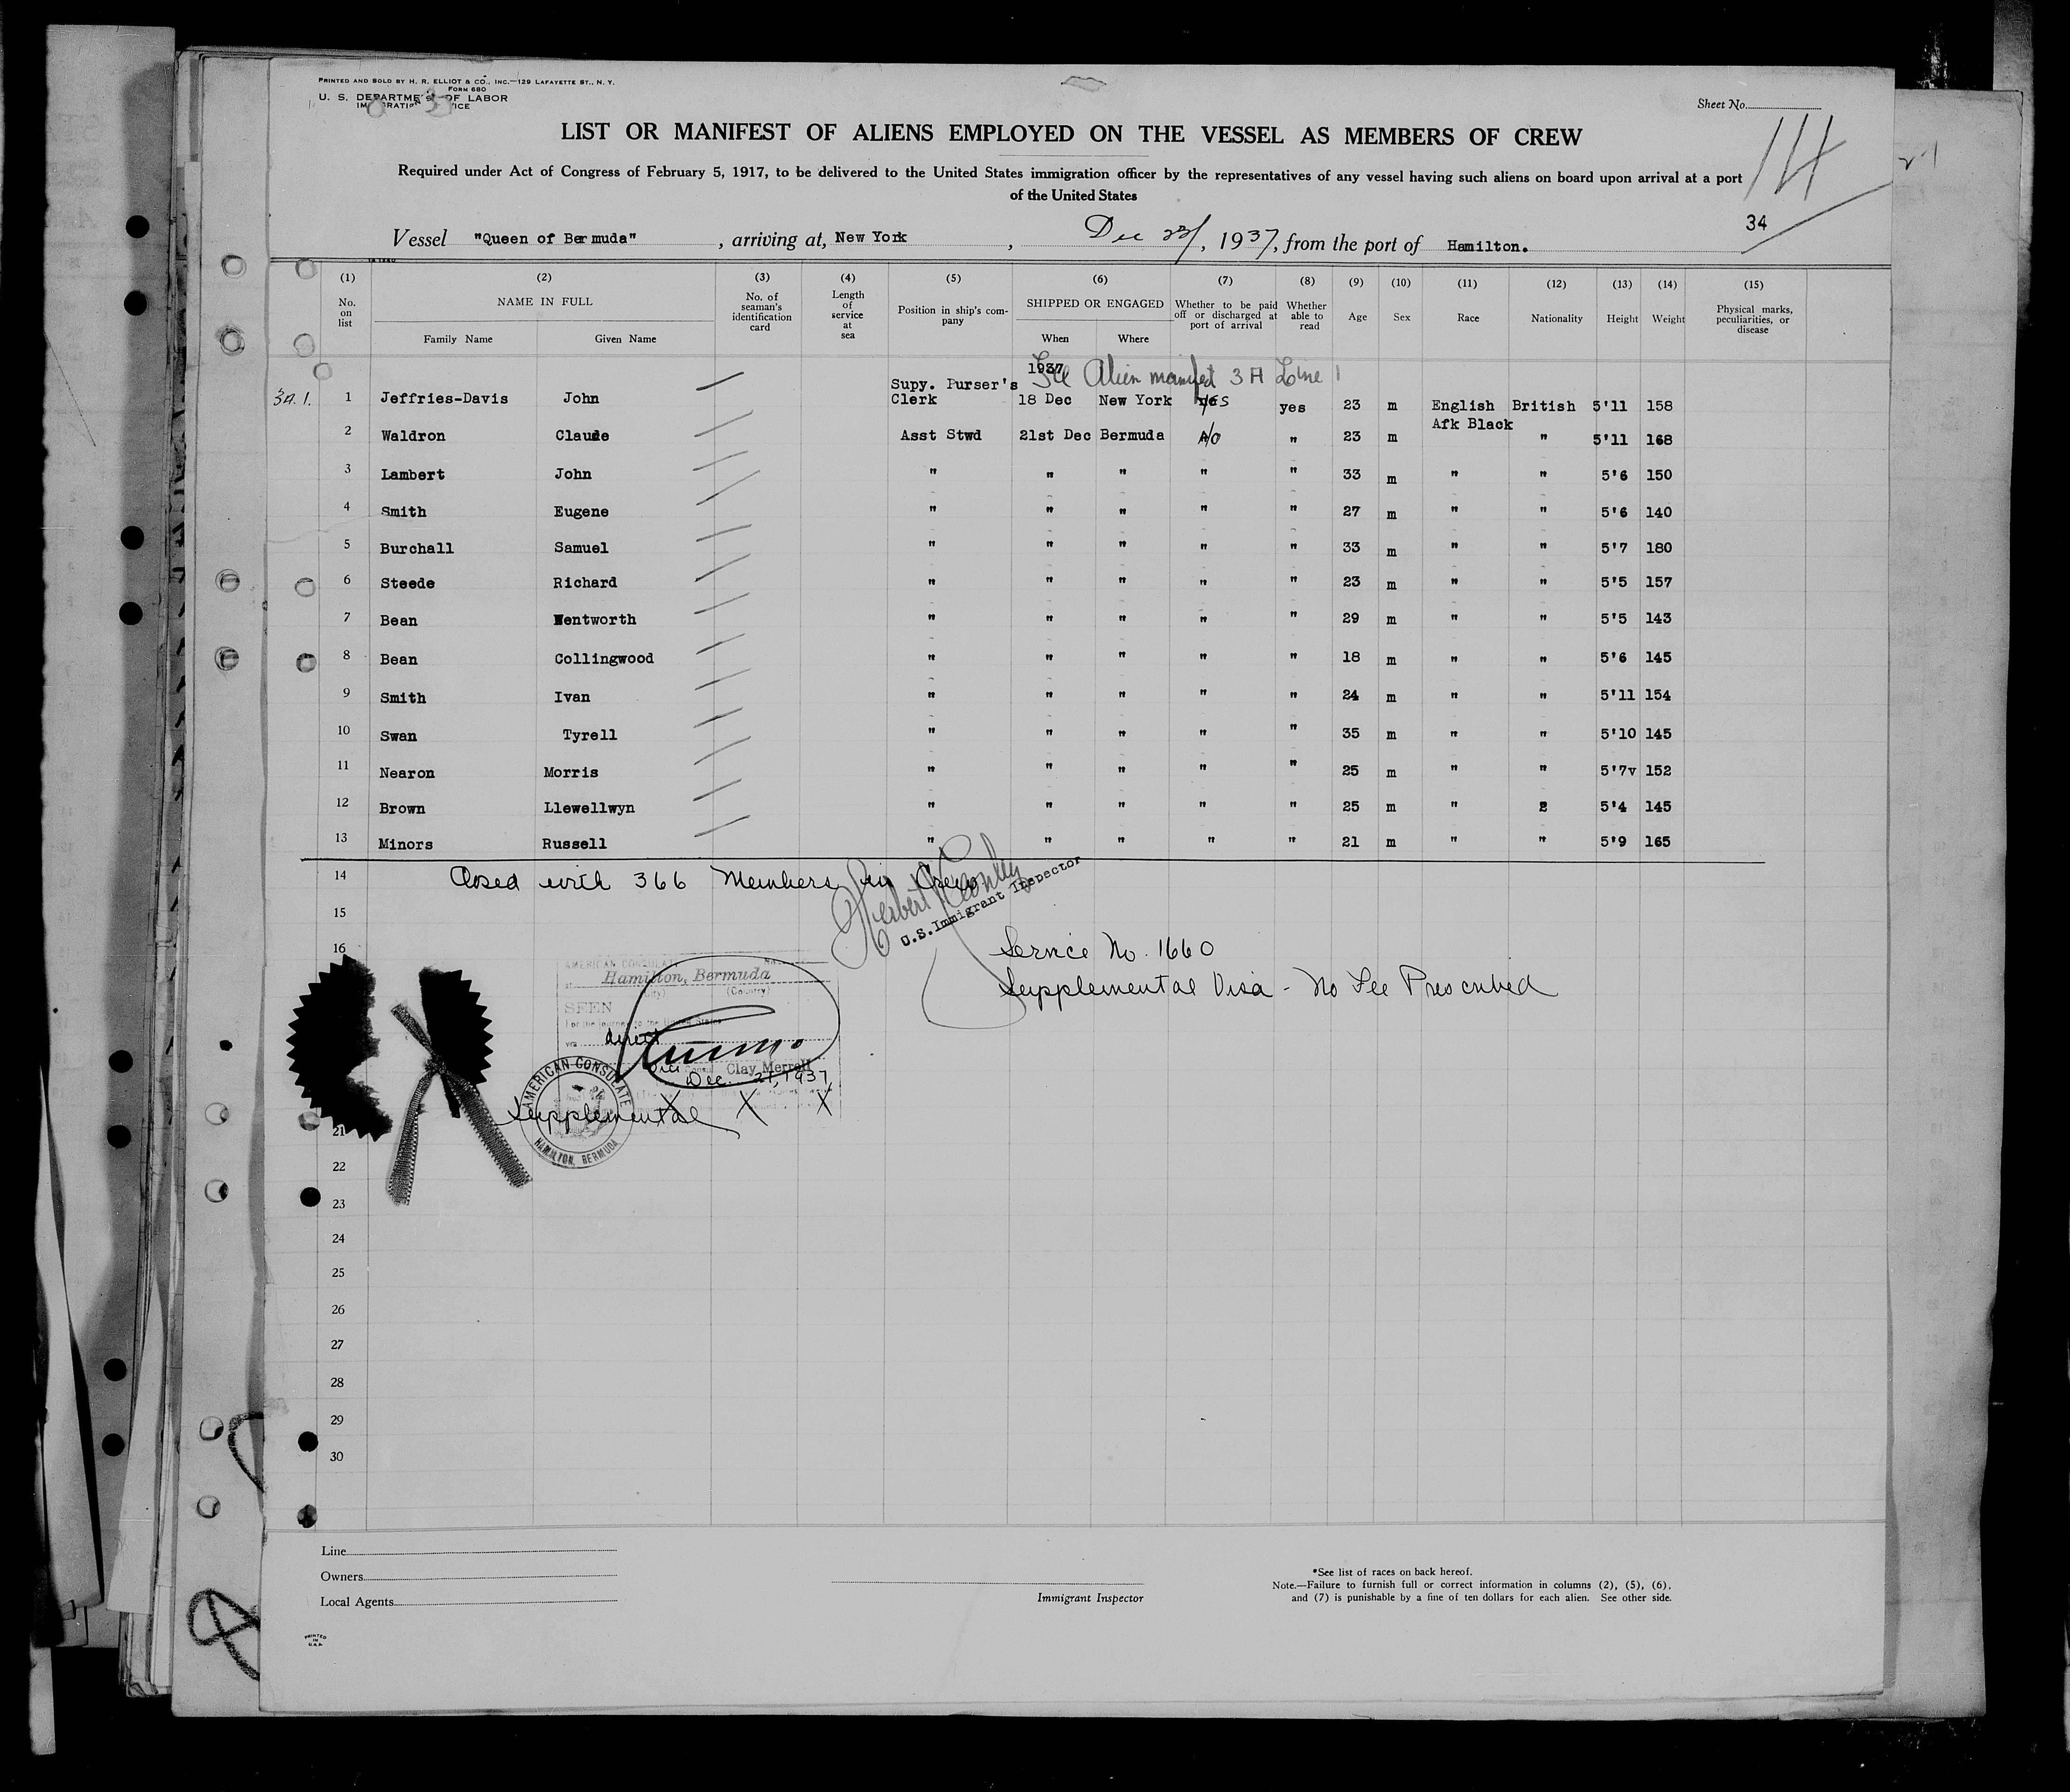 PRINTED AND SOLD BY H. R. ELLIOT & CO., INC.—129 LAFAYETTE ST., N. Y.
FORM 680
U. S. DEPARTMENT OF LABOR
Sheet No.
LIST OR MANIFEST OF ALIENS EMPLOYED ON THE VESSEL AS MEMBERS OF CREW
Required under Act of Congress of February 5, 1917, to be delivered to the United States immigration officer by the representatives of any vessel having such aliens on board upon arrival at a port
of the United States
34
Vessel "Queen of Bermuda", arriving at, New York, Dec 23/, 1937, from the port of Hamilton.
(1) (2) (3) (4) (5) (6) (7) (8) (9) (10) (11) (12) (13) (14) (15)
No. on list NAME IN FULL No. of seaman's identification card Length of service at sea Position in ship's company SHIPPED OR ENGAGED Whether to be paid off or discharged at port of arrival Whether able to read Age Sex Race Nationality Height Weight Physical marks, peculiarities, or disease
Family Name Given Name When Where
1937 See Alien manifest 3 A Line 1
34. 1. 1 Jeffries-Davis John Supy. Purser's Clerk 18 Dec New York yes yes 23 m English British 5'11 158
2 Waldron Claude Asst Stwd 21st Dec Bermuda No " 23 m Afk Black " 5'11 168
3 Lambert John " " " " " 33 m " " 5'6 150
4 Smith Eugene " " " " " 27 m " " 5'6 140
5 Burchall Samuel " " " " " 33 m " " 5'7 180
6 Steede Richard " " " " " 23 m " " 5'5 157
7 Bean Wentworth " " " " " 29 m " " 5'5 143
8 Bean Collingwood " " " " " 18 m " " 5'6 145
9 Smith Ivan " " " " " 24 m " " 5'11 154
10 Swan Tyrell " " " " " 35 m " " 5'10 145
11 Nearon Morris " " " " " 25 m " " 5'7v 152
12 Brown Llewellwyn " " " " " 25 m " 2 5'4 145
13 Minors Russell " " " " " 21 m " " 5'9 165
14 Closed with 366 Members in Crew
U.S. Immigrant Inspector
15
16 Service No. 1660
Supplemental Visa - No Fee Prescribed
AMERICAN CONSULATE
Hamilton, Bermuda
(Country)
SEEN
For the journey to the United States
direct
Clay Merrell
Dec. 21, 1937
AMERICAN CONSULATE
HAMILTON, BERMUDA
Supplemental X X X
21
22
23
24
25
26
27
28
29
30
Line
Owners
Local Agents
Immigrant Inspector
*See list of races on back hereof.
Note.—Failure to furnish full or correct information in columns (2), (5), (6),
and (7) is punishable by a fine of ten dollars for each alien. See other side.
PRINTED
IN
U.S.A.